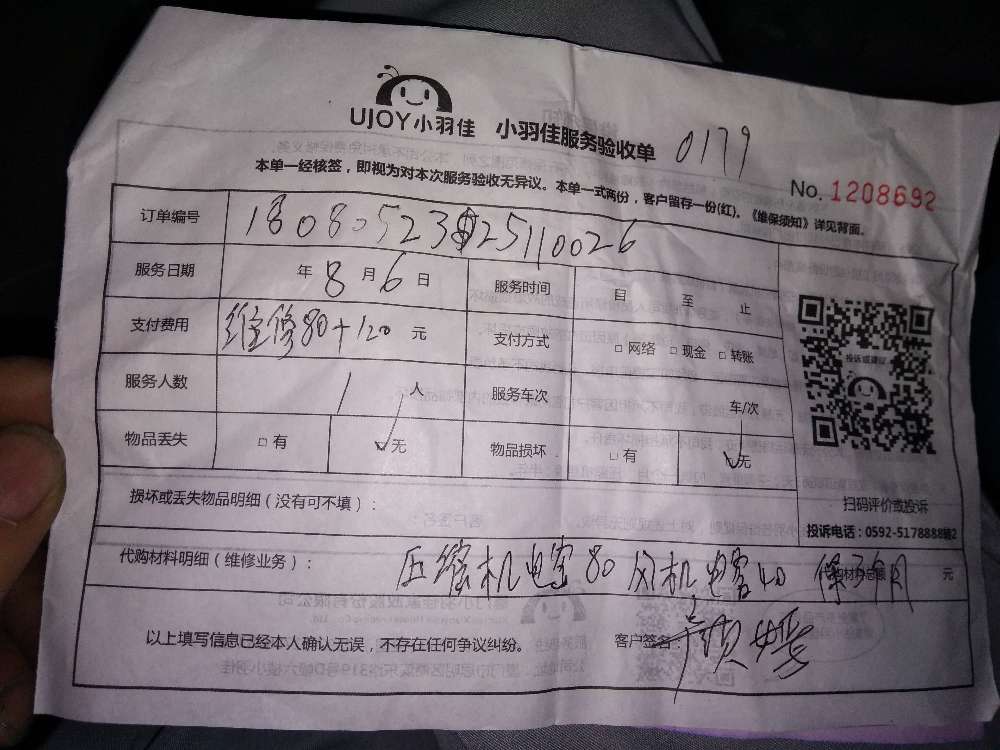 UJOY小羽佳 小羽佳服务验收单 0179
本单一经核签，即视为对本次服务验收无异议。本单一式两份，客户留存一份(红)。《维保须知》详见背面。
No. 1208692
订单编号
服务日期 年 8 月 6 日 服务时间 自 至 止
支付费用 维修80+120 元 支付方式 □网络 □现金 □转账
服务人数 1 人 服务车次 车/次
物品丢失 □有 ☑无 物品损坏 □有 ☑无
损坏或丢失物品明细（没有可不填）：
投诉或建议
扫码评价或投诉
投诉电话：0592-5178888转2
代购材料明细（维修业务）： 压缩机电容80 风机电容40 保3个月 代购材料总额 元
以上填写信息已经本人确认无误，不存在任何争议纠纷。 客户签名：